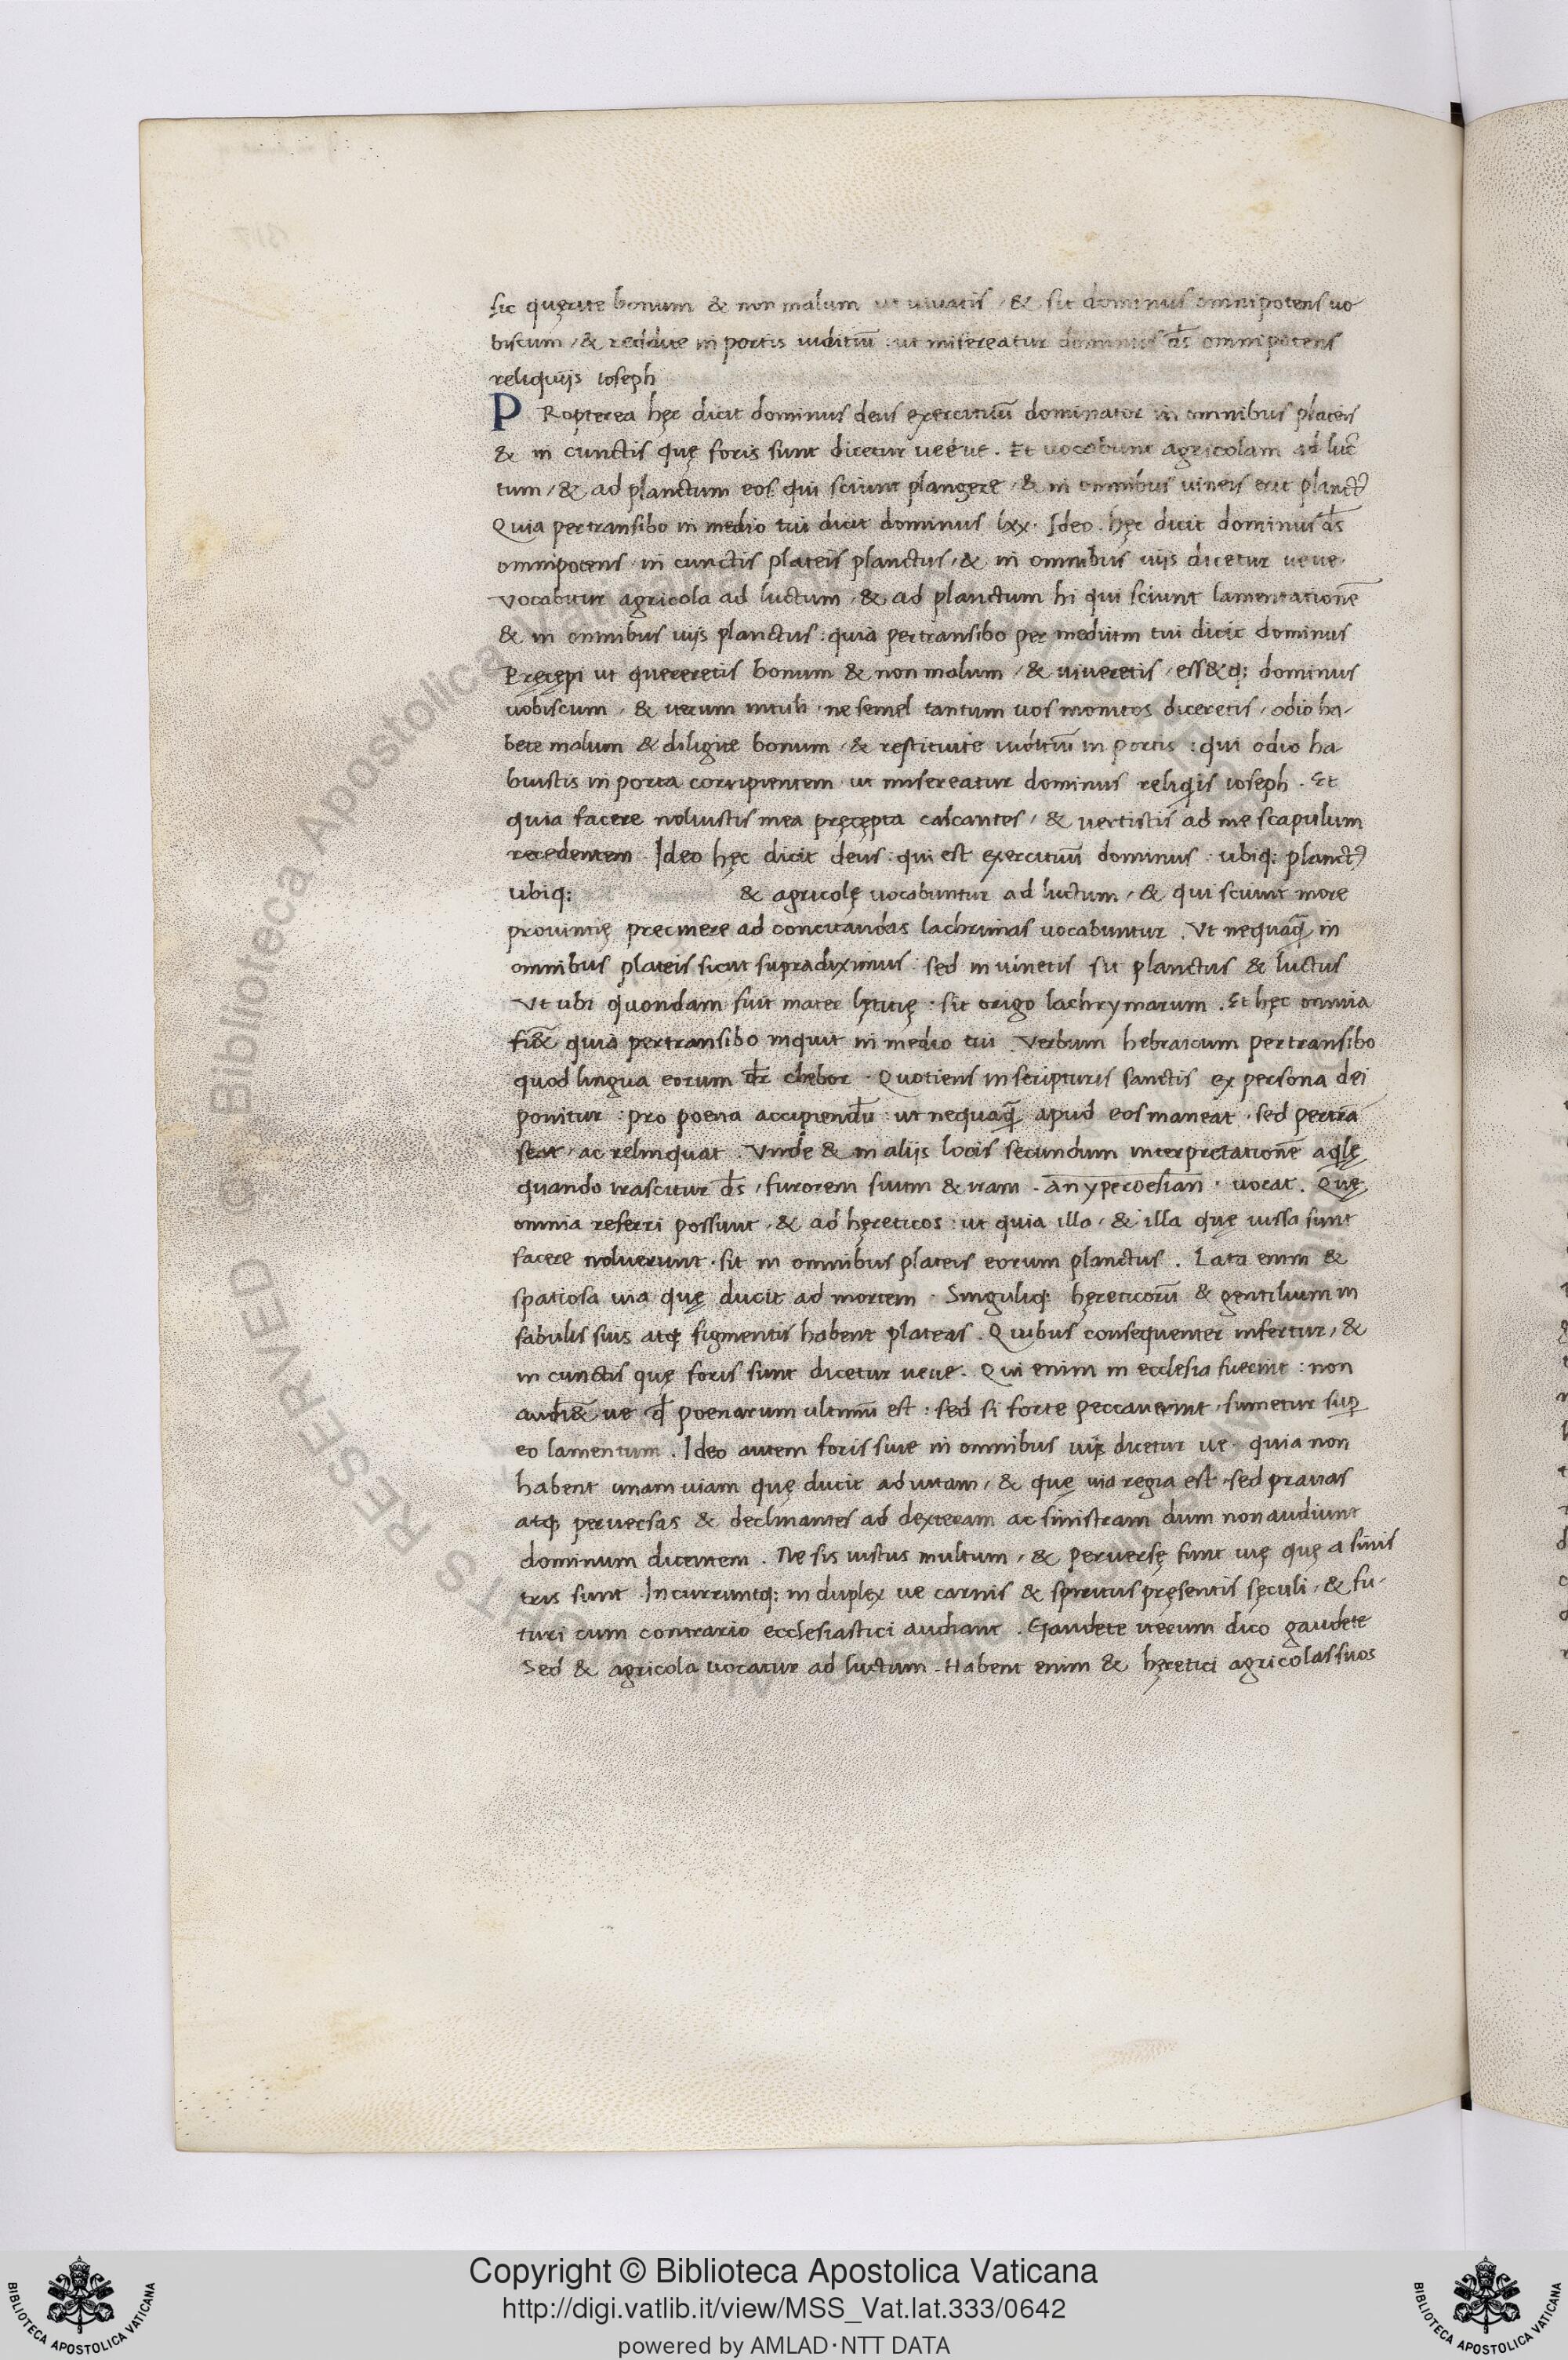 sic quęrite bonum & non malum ut uiuatis / & sit dominus omnipotens uo
biscum / & reddite in portis iuditiū : ut misereatur dominus d̄s omnipotens
reliquijs ioseph
PRopterea hęc dicit dominus deus exercituū dominator in omnibus plateis
& in cunctis quę foris sunt dicetur ue ue . Et uocabunt agricolam ad luc
tum / & ad planctum eos qui sciunt plangere / & in omnibus uineis erit planctꝰ
Quia pertransibo in medio tui dicit dominus lxx . Ideo hęc dicit dominus d̄s
omnipotens in cunctis plateis planctus / & in omnibus uijs dicetur ue ue .
Vocabitur agricola ad luctum / & ad planctum hi qui sciunt lamentationē
& in omnibus uijs planctus : quia pertransibo per medium tui dicit dominus
Pręcępi ut quereretis bonum & non malum / & uiueretis / ess&q; dominus
uobiscum / & iterum intuli · ne semel tantum uos monitos diceretis / odio ha-
bete malum & diligite bonum / & restituite iuditiū in portis : qui odio ha
buistis in porta corripientem ut misereatur dominus reliquis ioseph . Et
quia facere noluistis mea pręcępta calcantes / & uertistis ad me scapulum
recedentem . Ideo hęc dicit deus : qui est exercituū dominus · ubiq; planctꝰ
ubiq; & agricolę uocabuntur ad luctum / & qui sciunt more
prouintię precinere ad concitandas lachrimas uocabuntur . Vt nequaq̄ in
omnibus plateis sicut supradiximus sed in uinetis sit planctus & luctus
Vt ubi quondam fuit mater lętitię · sit origo lachrymarum . Et hęc omnia
fi&̄ quia pertransibo inquit in medio tui . Verbum hebraicum pertransibo
quod lingua eorum dr̄ chebor · Quotiens in scripturis sanctis ex persona dei
ponitur : pro poena accipiendū : ut nequaq̄ apud eos maneat · sed pertrā
seat / ac relinquat . Vnde & in alijs locis secundum interpretationē aqlę
quando irascitur d̄s / furorem suum & iram . anypercesian · uocat . Quę
omnia referri possunt / & ad hęreticos : ut quia illa / & illa quę iussa sunt
facere noluerunt · sit in omnibus plateis eorum planctus . Lata enim &
spatiosa uia quę ducit ad mortem . Singuliq; hęreticorū & gentilium in
fabulis suis atq; figmentis habent plateas . Quibus consequenter infertur / &
in cunctis quę foris sunt dicetur ue ue . Qui enim in ecclesia fuerint : non
audi&̄ ue q̄d poenarum ultimū est : sed si forte peccauerint / sumetur sup̄
eo lamentum . Ideo autem foris siue in omnibus uijs dicetur ue · quia non
habent unam uiam quę ducit ad uitam / & quę uia regia est · sed prauas
atq; peruersas & declinantes ad dexteram ac sinistram dum non audiunt
dominum dicentem . Ne sis iustus multum / & peruersę sunt uię quę a sinis
tris sunt . Incurruntq; in duplex ue carnis & spiritus pręsentis sęculi / & fu-
turi cum contrario ecclesiastici audiant . Gaudete iterum dico gaudete
Sed & agricola uocatur ad luctum . Habent enim & hęretici agricolas suos
Copyright © Biblioteca Apostolica Vaticana
http://digi.vatlib.it/view/MSS_Vat.lat.333/0642
powered by AMLAD·NTT DATA